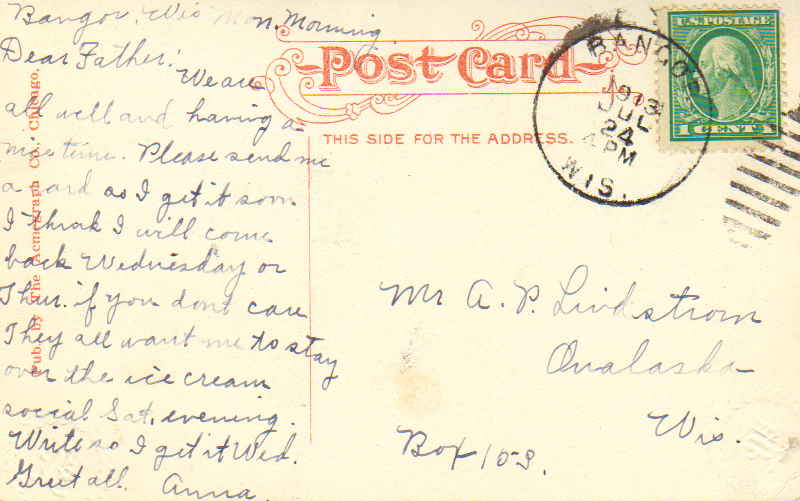 Bangor, Wis Mon. Morning
Dear Father!
We are
all well and having a
nice time. Please send me
a card as I get it soon
I think I will come
back Wednesday or
Thur. if you dont care
They all want me to stay
over the ice cream
social Sat. evening.
Write so I get it Wed.
Greet all. Anna
Pub. by The Acmegraph Co., Chicago.
Post Card
THIS SIDE FOR THE ADDRESS.
BANGOR
1913
JUL
24
4 PM
WIS.
U.S. POSTAGE
1 CENT 1
Mr A. P. Lindstrom
Onalaska
Wis.
Box 103.